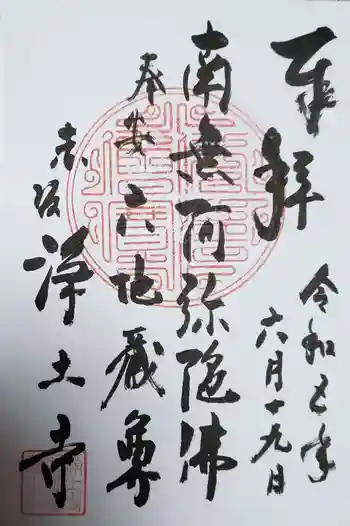 奉拝
令和七年
六月十九日
南無阿弥陀佛
奉安六地蔵尊
赤坂浄土寺